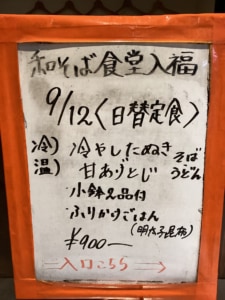 和そば食堂入福
9/12〈日替定食〉
冷)冷やしたぬき そば
温)甘あげとじ うどん
小鉢2品付
ふりかけごはん
(明太子昆布)
¥900ー
→入口こちら→